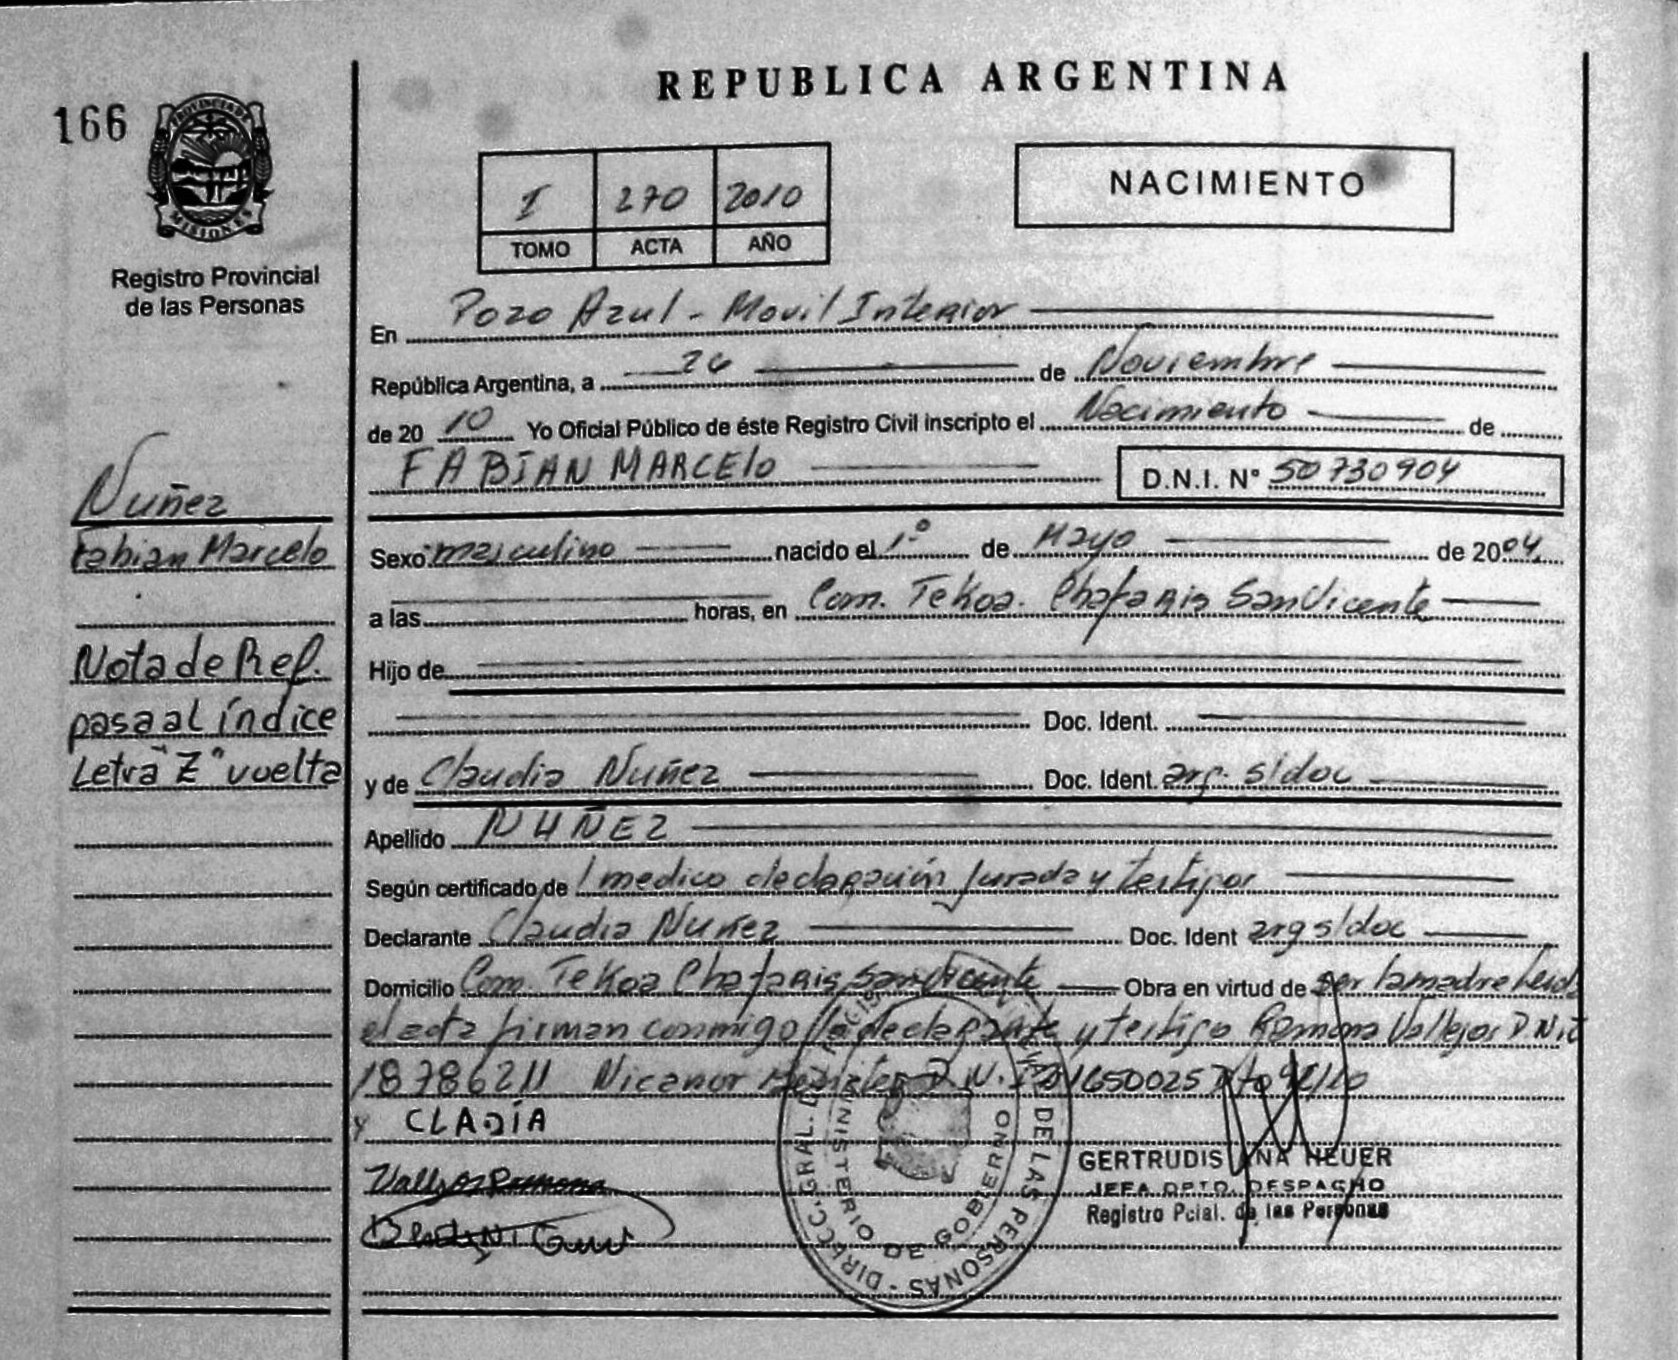 REPUBLICA ARGENTINA
166
PROVINCIA DE
MISIONES
Registro Provincial
de las Personas
I 270 2010
TOMO ACTA AÑO
NACIMIENTO
En Pozo Azul - Movil Interior
República Argentina, a 26 de Noviembre
de 2010 Yo Oficial Público de éste Registro Civil inscripto el Nacimiento de
FABIAN MARCELO D.N.I. N° 50730904
Nuñez
Fabian Marcelo
Nota de Ref.
pasa al índice
Letra "Z" vuelta
Sexo masculino nacido el 1° de Mayo de 2004
a las horas, en Com. Tekoa San Vicente
Hijo de
Doc. Ident.
y de Claudia Nuñez Doc. Ident. arg. s/doc
Apellido NUÑEZ
Según certificado de medico declaración Jurada y testigos
Declarante Claudia Nuñez Doc. Ident arg s/doc
Domicilio Com. Tekoa San Vicente Obra en virtud de ser la madre
el acta firman conmigo la declarante y testigo Ramona Vallejos D.N.I.
18786211 Nicanor D.N.I.
y CLADÍA
Vallejos Ramona
DIRECC. GRAL. DE LAS PERSONAS
MINISTERIO DE GOBIERNO
GERTRUDIS ANA HEUER
JEFA DPTO. DESPACHO
Registro Pcial. de las Personas